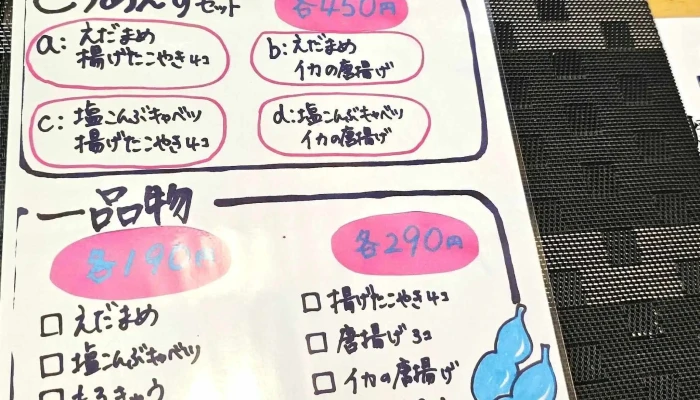 セット 各450円
a: えだまめ
揚げたこやき4コ
b: えだまめ
イカの唐揚げ
c: 塩こんぶキャベツ
揚げたこやき4コ
d: 塩こんぶキャベツ
イカの唐揚げ
一品物
各190円
□ えだまめ
□ 塩こんぶキャベツ
□ もろきゅう
各290円
□ 揚げたこやき4コ
□ 唐揚げ3コ
□ イカの唐揚げ